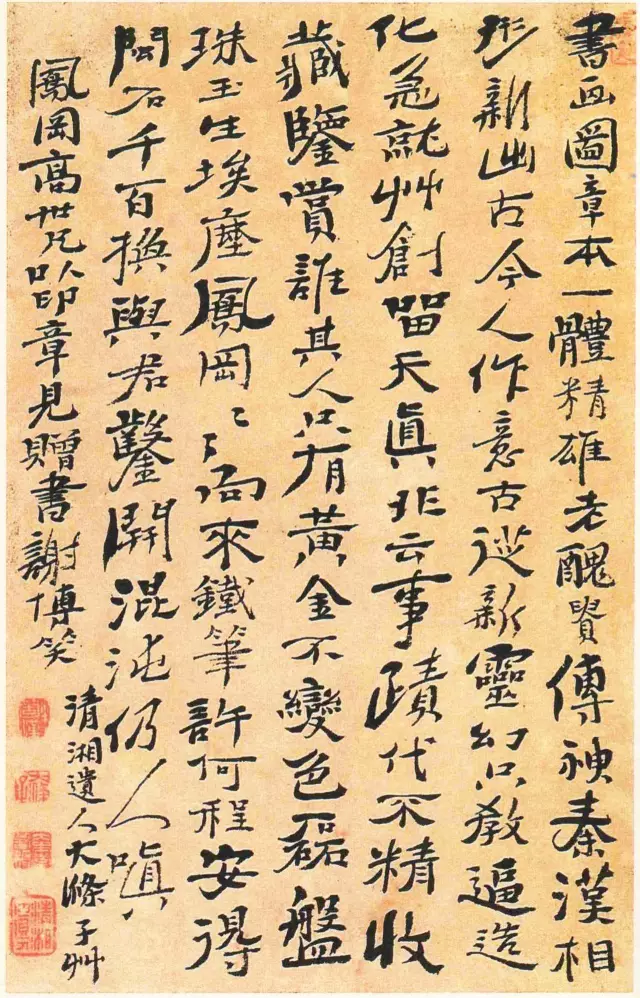 書画圖章本一體精雄老醜貴傳神秦漢相
形新出古今人作意古從新靈幻只教逼造
化急就艸創留天真非云事蹟代不精收
藏鑒賞誰其人只有黃金不變色磊盤
珠玉生埃塵鳳岡鳳岡向來鐵筆許何程安得
閑石千百換與君鑿開混沌仍人嗔
鳳岡高世兄以印章見贈書謝博笑
清湘遺人大滌子艸